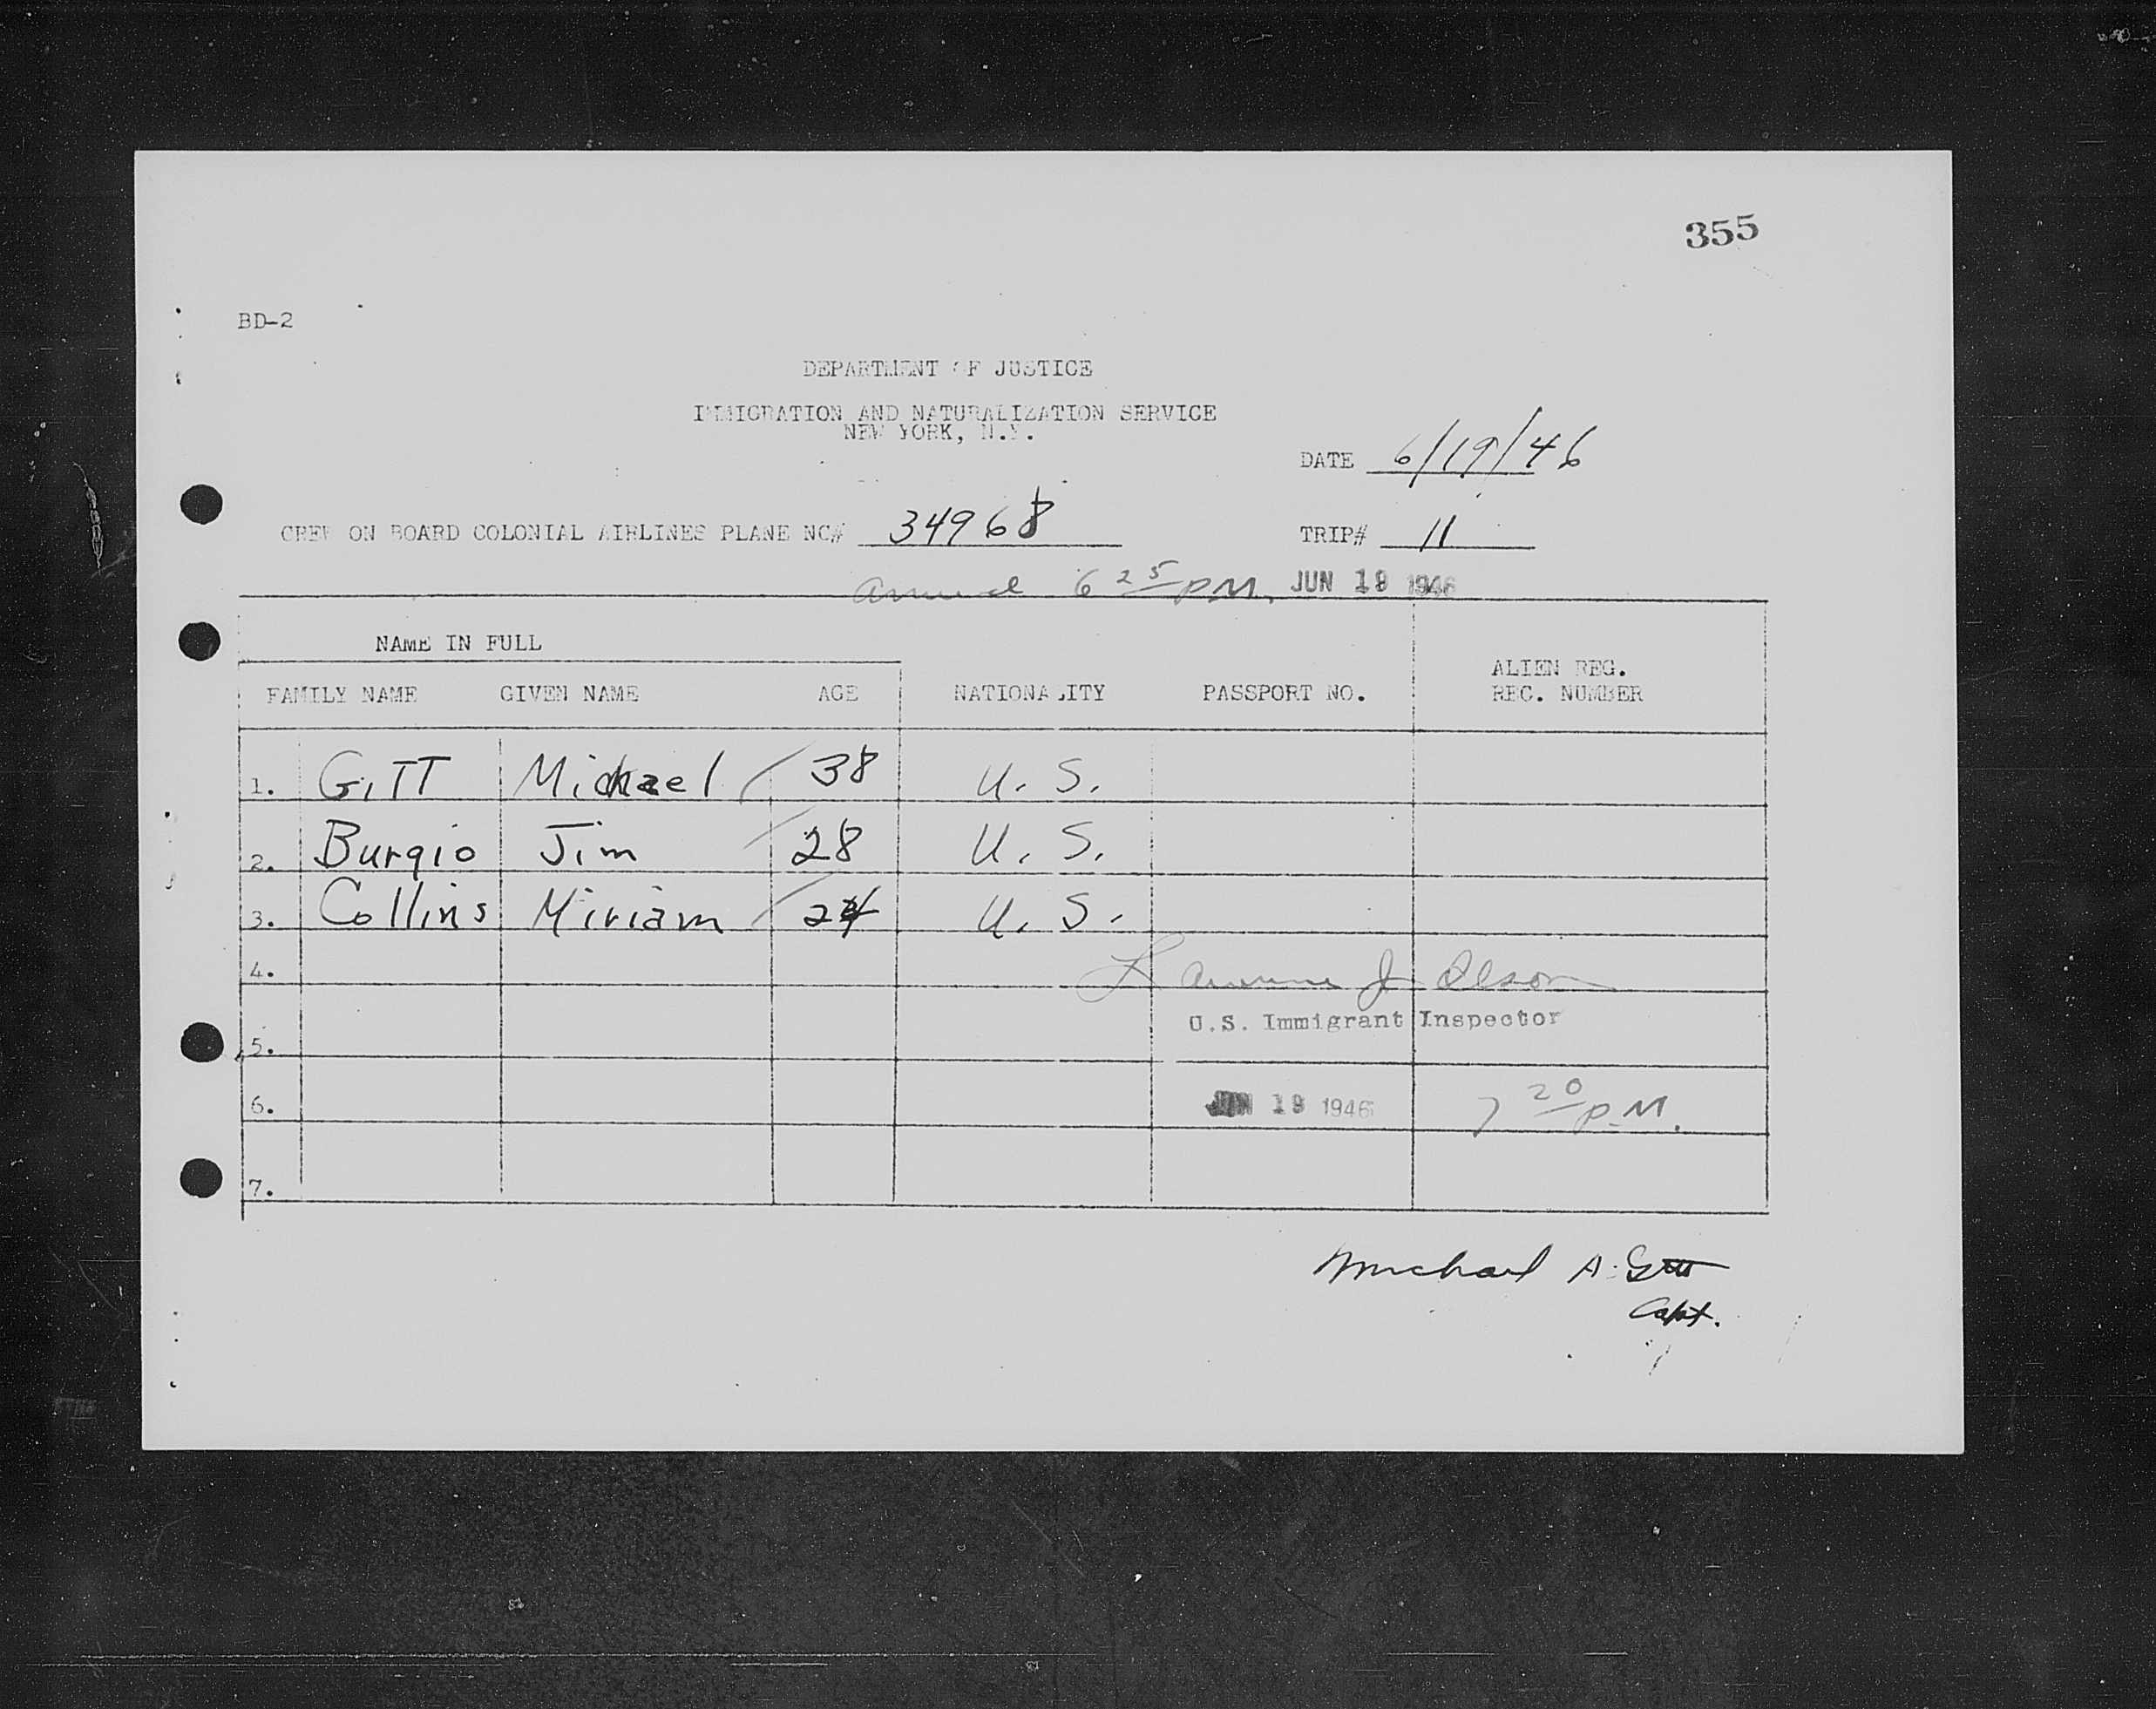 355
BD-2
DEPARTMENT OF JUSTICE
IMMIGRATION AND NATURALIZATION SERVICE
NEW YORK, N.Y.
DATE 6/19/46
CREW ON BOARD COLONIAL AIRLINES PLANE NC# 34968
TRIP# 11
Arrived 6 25 PM, JUN 19 1946
NAME IN FULL
ALIEN REG.
FAMILY NAME GIVEN NAME AGE NATIONALITY PASSPORT NO. REC. NUMBER
1. GITT Michael 38 U. S.
2. Burgio Jim 28 U. S.
3. Collins Miriam 24 U. S.
4. Lawrence J Olson
U.S. Immigrant Inspector
5.
6. JUN 19 1946 7 20 P.M.
7.
Michael A. Gitt
Capt.